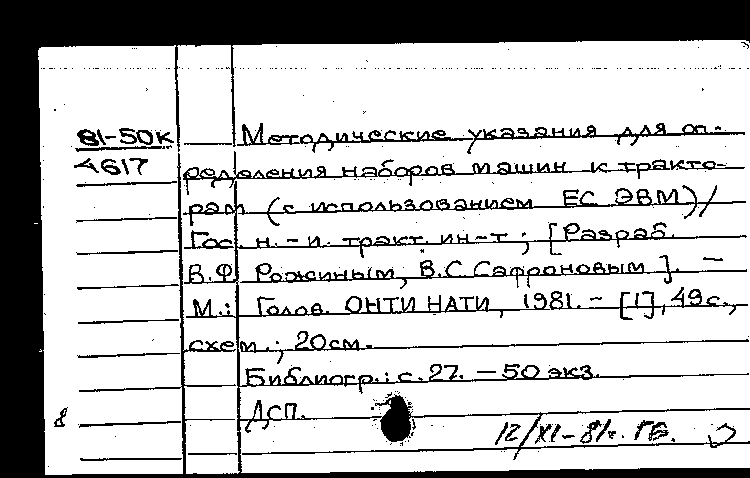 81-50к
4617
Методические указания для оп-
ределения наборов машин к тракто-
рам (с использованием ЕС ЭВМ) /
Гос. н.-и. тракт. ин-т ; [Разраб.
В.Ф. Рожиным, В.С. Сафроновым]. —
М.: Голов. ОНТИ НАТИ, 1981. - [1], 49 с.,
схем.; 20 см.
Библиогр.: с. 27. - 50 экз.
ДСП.
8
12/XI-81г. ГБ.